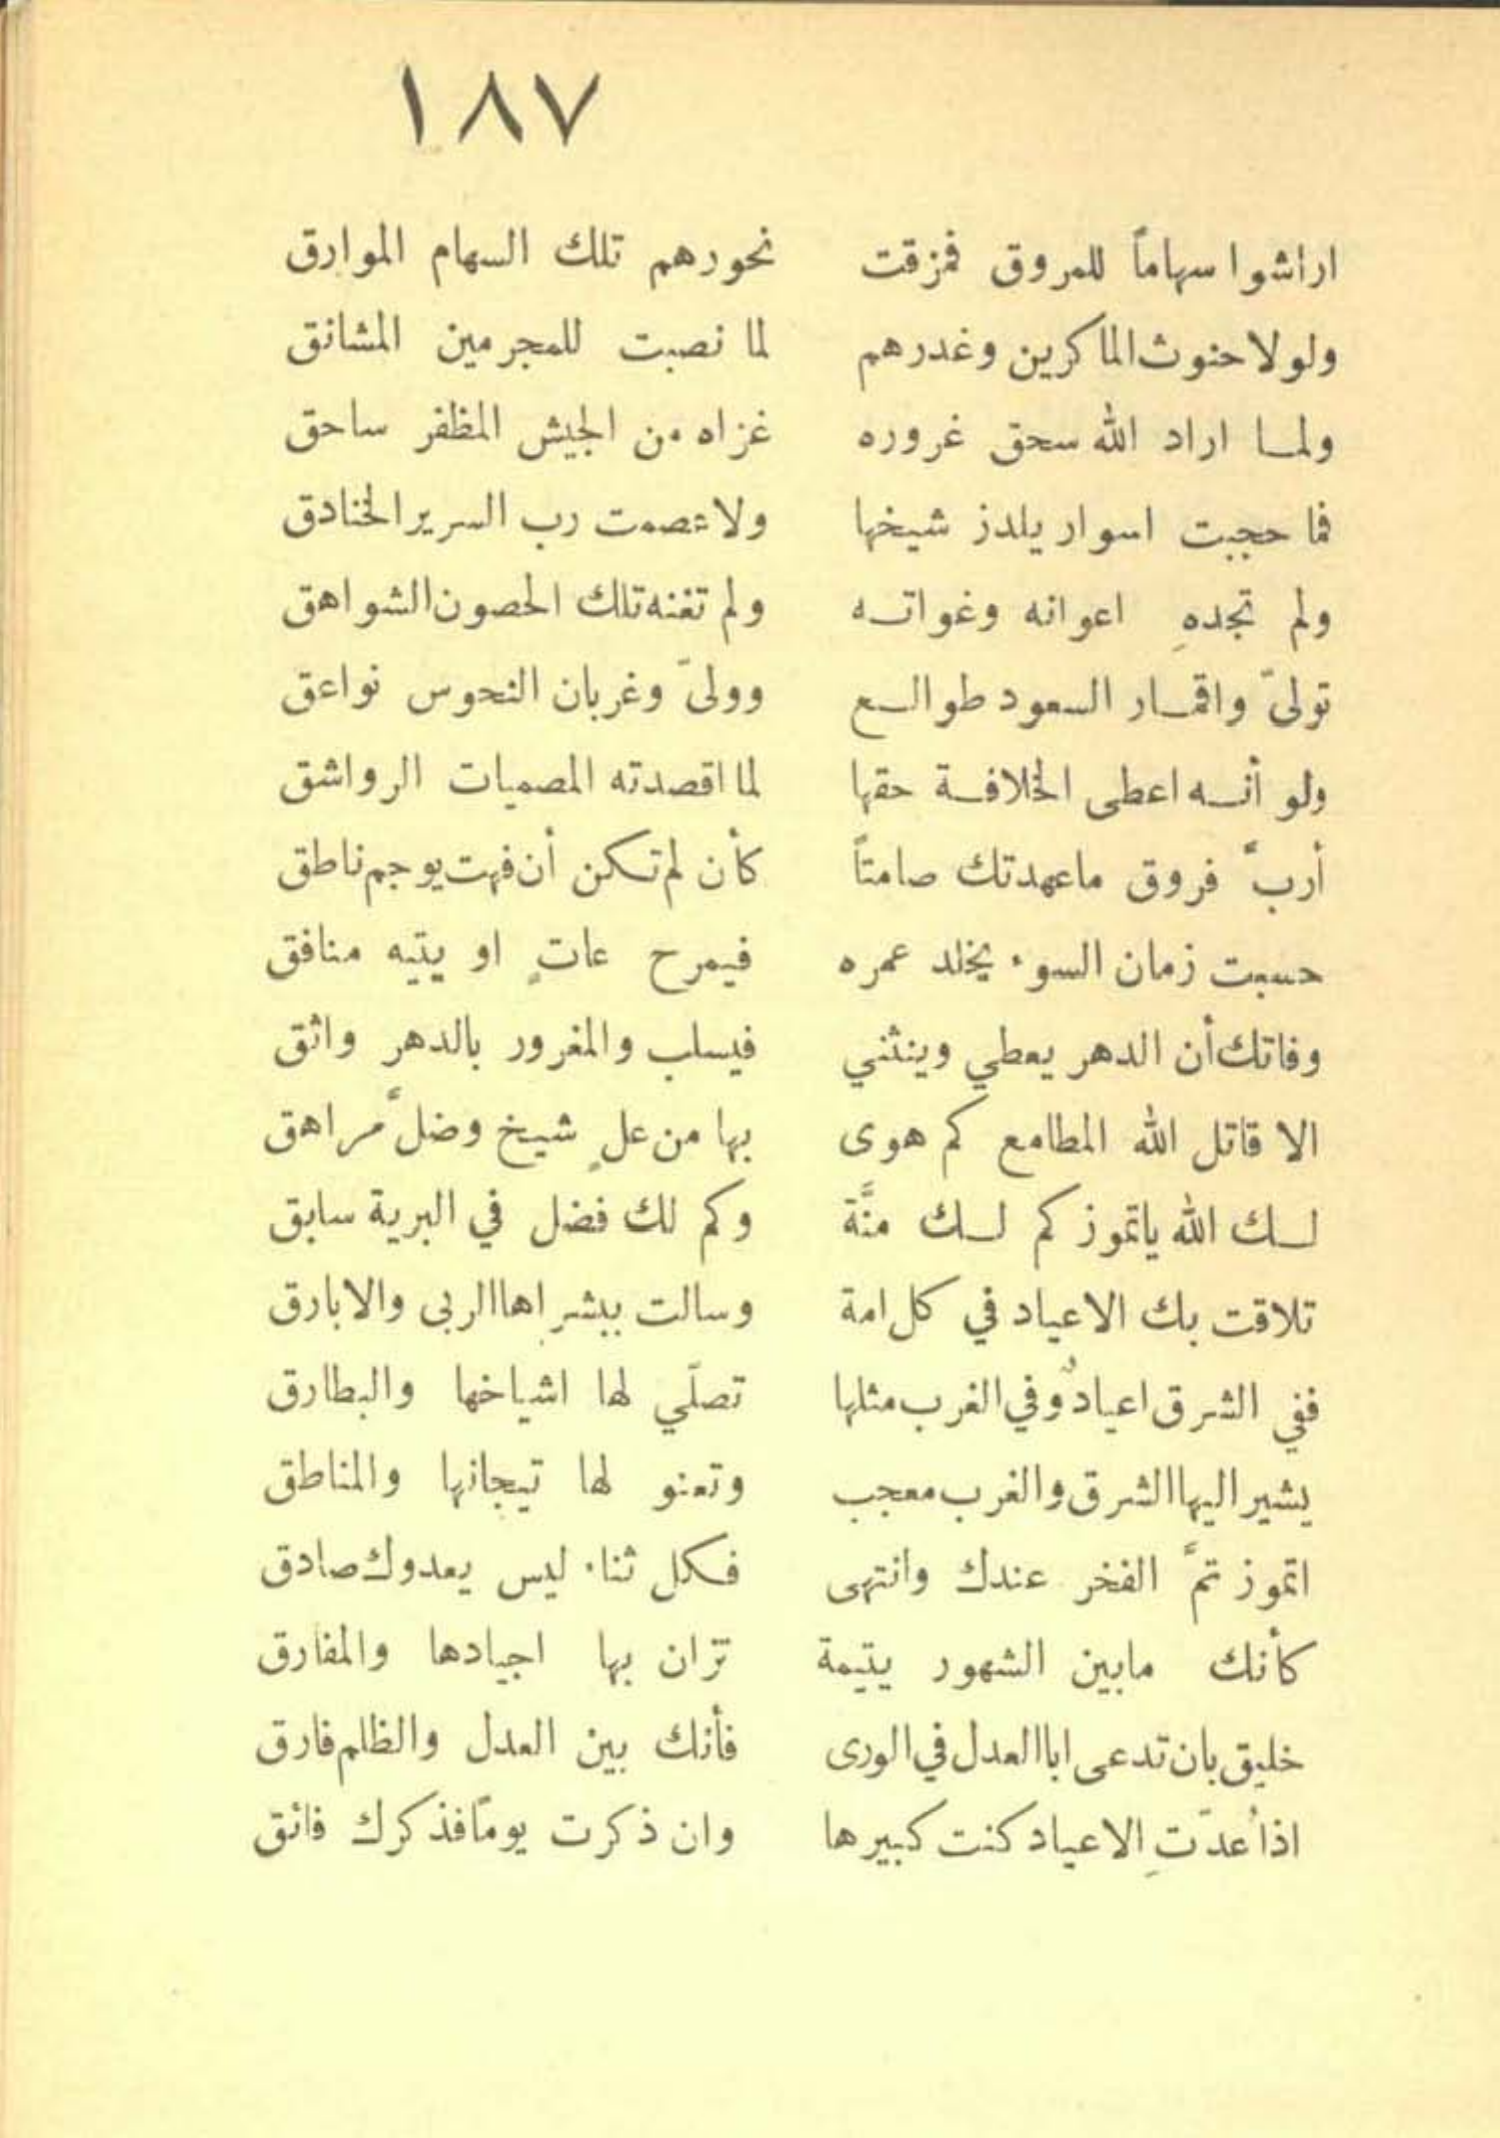 ١٨٧
اراشوا سهاماً للمروق فمزقت نحورهم تلك السهام الموارق
ولولا حنوث الماكرين وغدرهم لما نصبت للمجرمين المشانق
ولما اراد الله سحق غروره غزاه من الجيش المظفر ساحق
فما حجبت اسوار يلدز شيخها ولا عصمت رب السرير الخنادق
ولم تجدهِ اعوانه وغواته ولم تغنه تلك الحصون الشواهق
تولىّ واقمار السعود طوالع وولىّ وغربان النحوس نواعق
ولو أنه اعطى الخلافة حقها لما اقصدته المصميات الرواشق
أربَّ فروق ماعهدتك صامتاً كأن لم تكن أن فهت يوجم ناطق
حسبت زمان السوء يخلد عمره فيمرح عاتٍ او يتيه منافق
وفاتك أن الدهر يعطي وينثني فيسلب والمغرور بالدهر واثق
الا قاتل الله المطامع كم هوى بها من علٍ شيخ وضلَّ مراهق
لك الله ياتموز كم لك منَّة وكم لك فضل في البرية سابق
تلاقت بك الاعياد في كل امة وسالت ببشراها الربى والابارق
ففي الشرق اعيادٌ وفي الغرب مثلها تصلّي لها اشياخها والبطارق
يشير اليها الشرق والغرب معجب وتعنو لها تيجانها والمناطق
اتموز تمَّ الفخر عندك وانتهى فكل ثناء ليس يعدوك صادق
كأنك مابين الشهور يتيمة تزان بها اجيادها والمفارق
خليق بان تدعى ابا العدل في الورى فأنك بين العدل والظلم فارق
اذا عُدّتِ الاعياد كنت كبيرها وان ذكرت يوماً فذكرك فائق